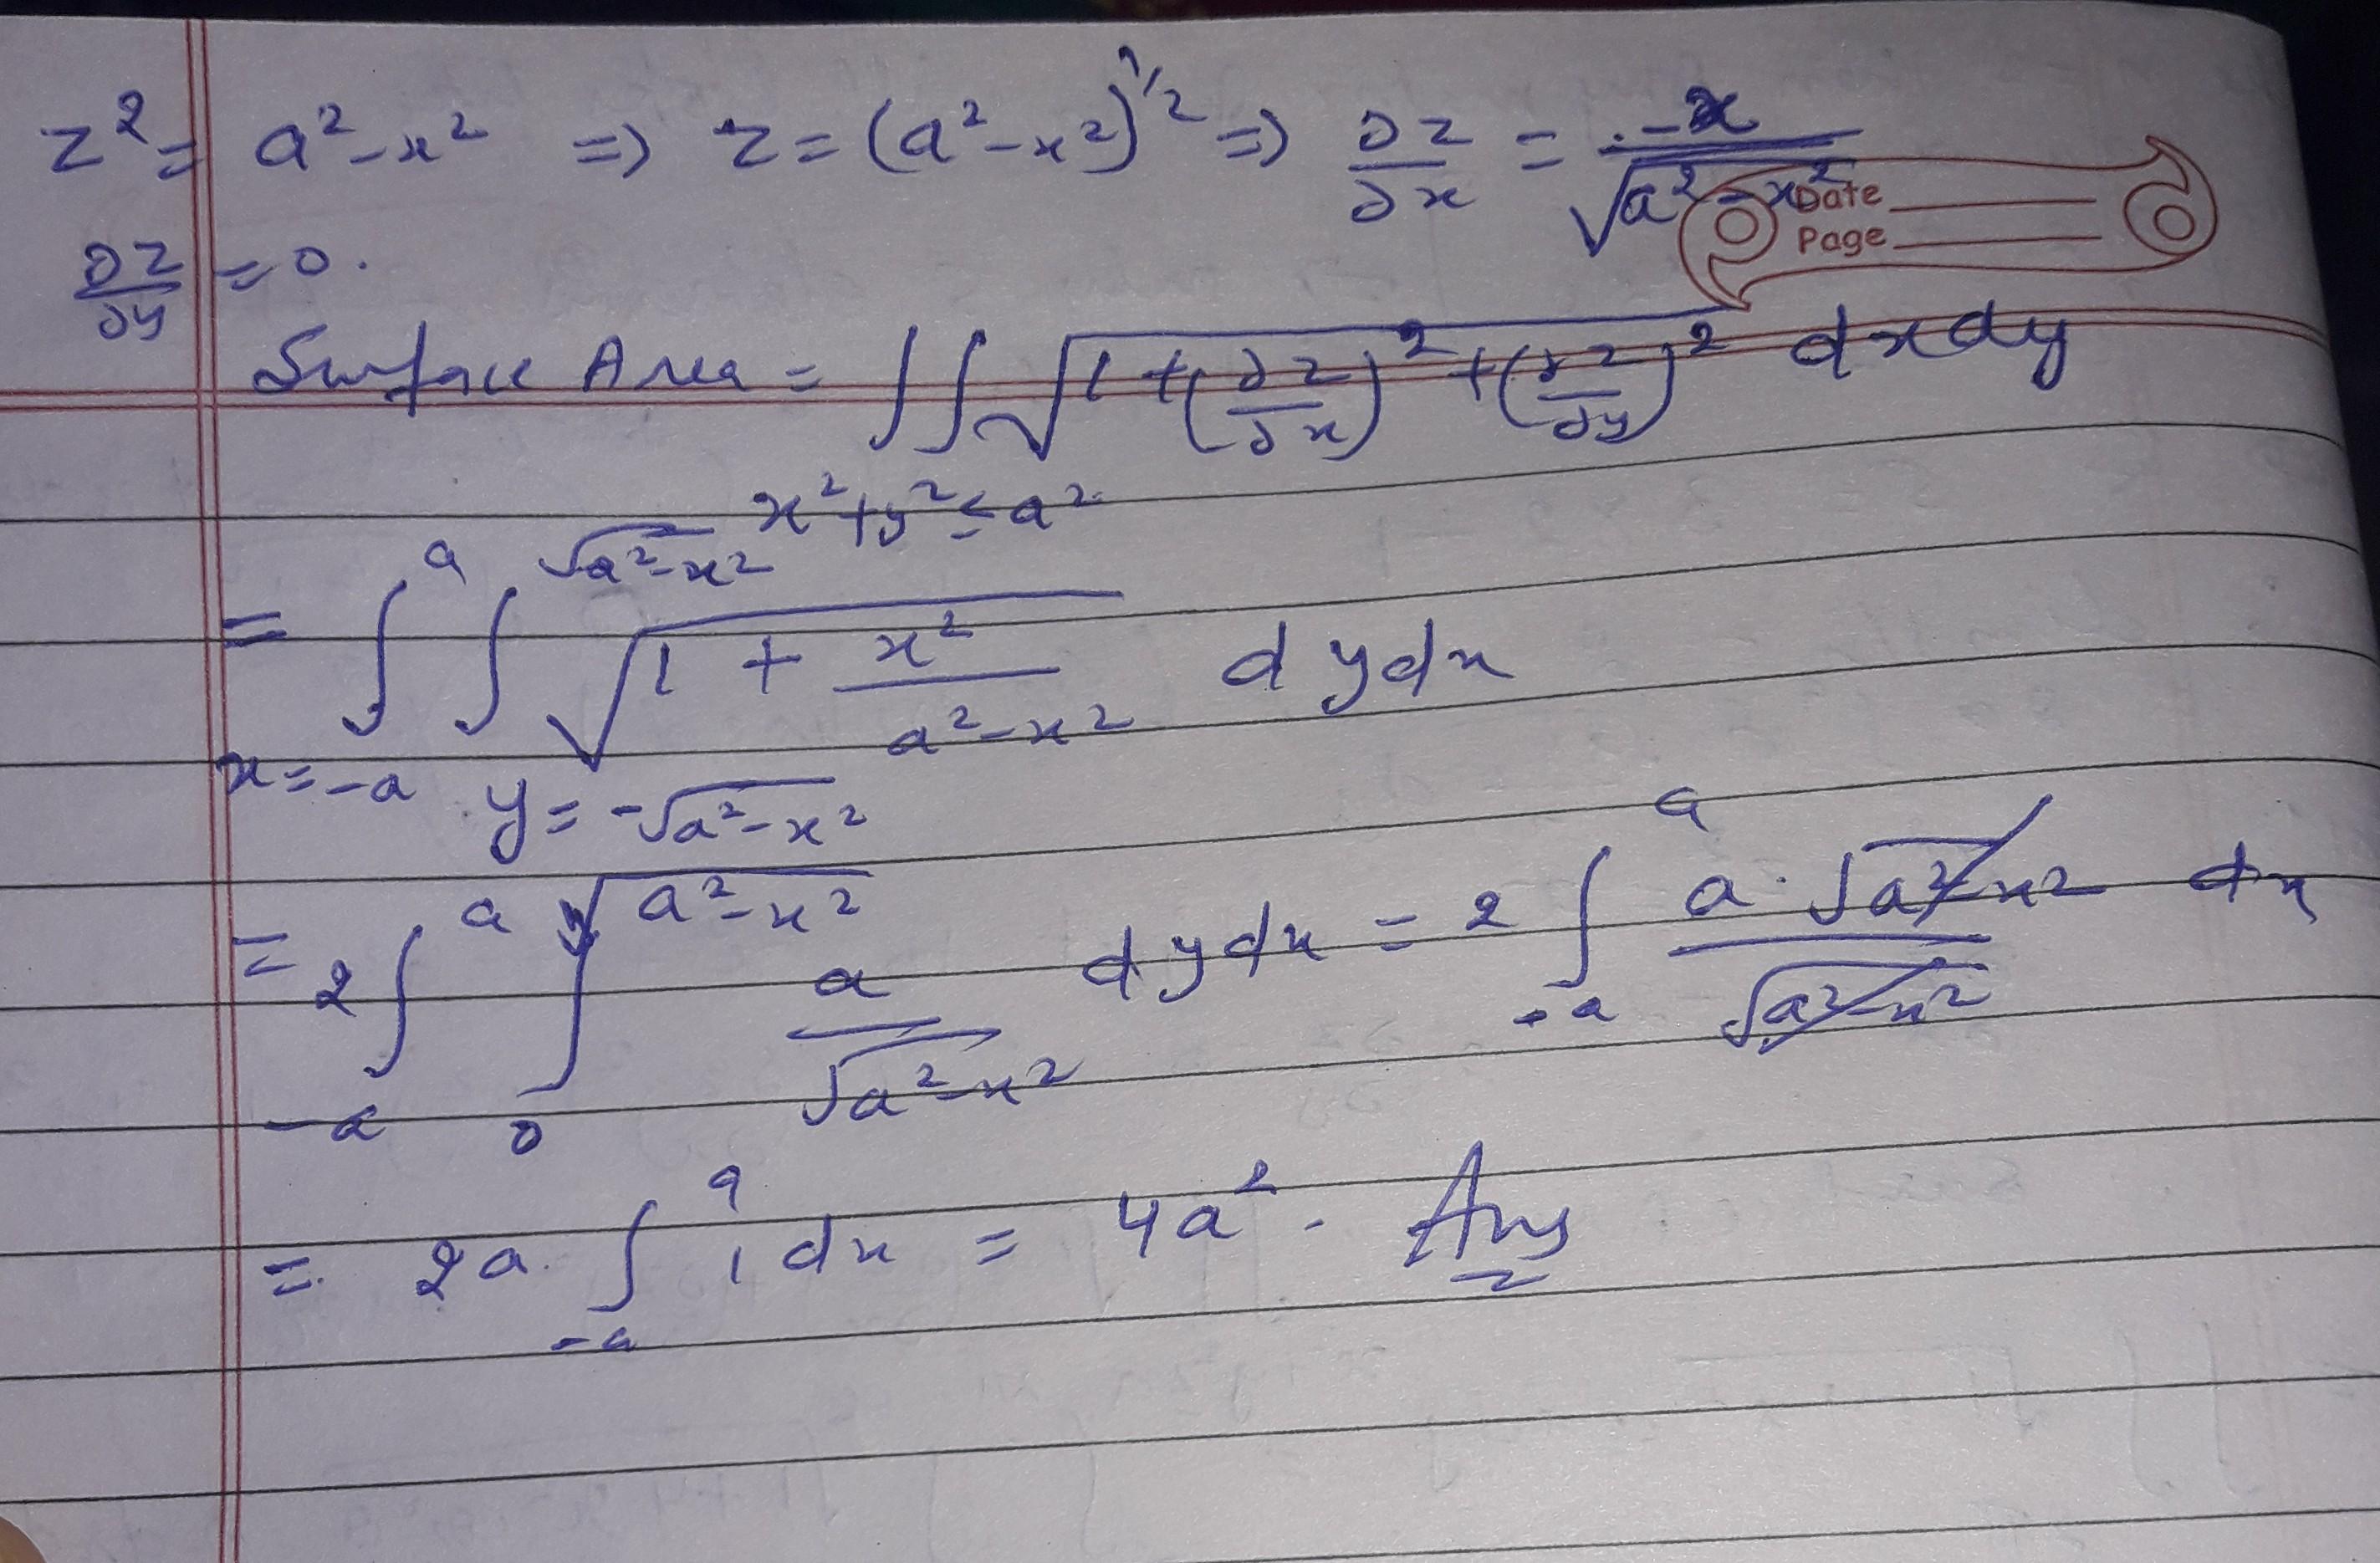 z² = a² - x² => z = (a² - x²)^1/2 => ∂z/∂x = -x/√(a² - x²)
Date
Page
∂z/∂y = 0.
Surface Area = ∫∫ √(1 + (∂z/∂x)² + (∂z/∂y)²) dxdy
x² + y² ≤ a²
= ∫_{x=-a}^{a} ∫_{y=-√(a²-x²)}^{√(a²-x²)} √(1 + x²/(a²-x²)) dydx
= 2 ∫_{-a}^{a} ∫_{0}^{√(a²-x²)} a/√(a²-x²) dydx = 2 ∫_{-a}^{a} a·√(a²-x²)/√(a²-x²) dx
= 2a. ∫_{-a}^{a} 1 dx = 4a². Ans